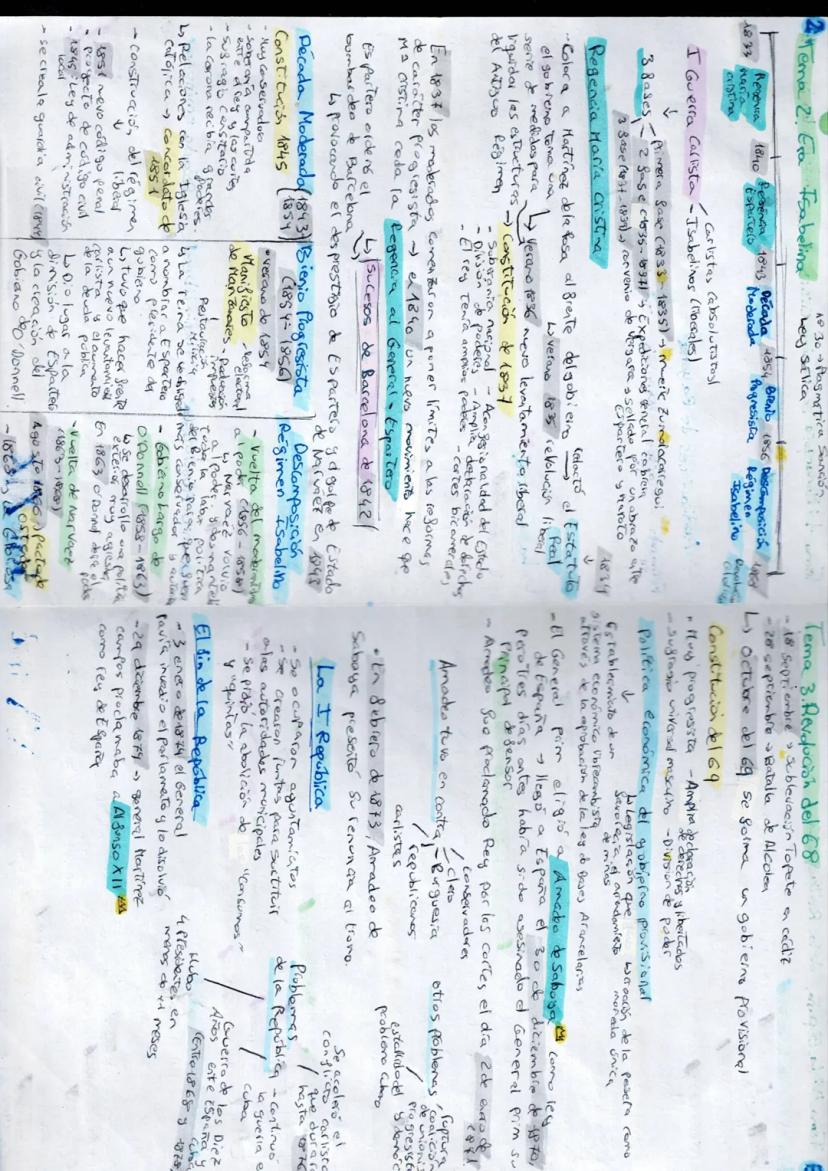 2 Tema 2: Era Isabelina
1830 → Pragmática Sanción
Ley sálica
1833 Regencia María Cristina 1840 Regencia Espartero 1843 Década Moderada 1854 Bienio Progresista 1856 Descomposición Régimen Isabelino 1868
I Guerra Carlista
Carlistas (absolutistas)
Isabelinos (liberales)
3 fases
primera fase (1833 - 1835) → muere Zumalacárregui
2 fase (1835-1837) → Expediciones general
3 fase (1837-1839) → convenio de Vergara sellado por un abrazo entre
Espartero y Maroto
Regencia María Cristina
- Coloca a Martínez de la Rosa al frente del gobierno redactó el Estatuto Real 1834
↳ verano 1835 revolución liberal
el gobierno toma una
serie de medidas para
liquidar las estructuras
del Antiguo Régimen
↳ verano 1836 nuevo levantamiento liberal
→ Constitución de 1837
- Soberanía nacional - Aconfesionalidad del Estado
- División de poderes - Amplia declaración de derechos
- El rey tenía amplios poderes - cortes bicamerales
En 1837 los moderados comenzaron a poner límites a las reformas
de carácter progresista → el 1840 un nuevo movimiento hace que
Mª Cristina ceda la Regencia al General Espartero
Espartero ordenó el
bombardeo de Barcelona
↳ Sucesos de Barcelona de 1842
↳ provocando el desprestigio de Espartero y golpe de Estado
de Narváez en 1843
Década Moderada (1843-1854)
Constitución 1845
- Muy conservadora
- Soberanía compartida
entre el rey y las cortes
- Sufragio censitario
- la corona recibía grandes
poderes
↳ Relaciones con la Iglesia
católica → concordato de
1851
- construcción del régimen
liberal
- 1851 nuevo código penal
- proyecto de código civil
- 1845 Ley de administración
local
- se crea la guardia civil (1844)
Bienio Progresista
(1854-1856)
- verano de 1854
Manifiesto de Manzanares
Reforma electoral
Reducción impuestos
Restauración milicia
↳ La reina se ve obligada
a nombrar a Espartero
como presidente del
gobierno
↳ tuvo que hacer frente
a un nuevo levantamiento
carlista y el aumento
de la deuda pública
↳ Dio lugar a la
dimisión de Espartero
y la creación del
Gobierno de O'Donnell
Descomposición
Régimen Isabelino
- Vuelta del moderantismo
al poder (1856 - 1858)
↳ Narváez volvió
al poder, desmanteló
toda la labor política
del bienio
- Gobierno largo de
O'Donnell (1858-1863)
↳ se desarrolló una política
exterior muy agresiva
En 1863 O'Donnell deja el poder
- Vuelta de Narváez
(1863-1868)
Tema 3: Revolución del 68
- 18 septiembre → sublevación Topete en Cádiz
- 28 septiembre → batalla de Alcolea
↳ Octubre del 69 se forma un gobierno provisional
Constitución del 69
- Muy progresista - Amplia declaración
de derechos y libertades
- Sufragio universal masculino - División de poder
Política económica del gobierno provisional
Establecimiento de un
sistema económico librecambista
através de la aprobación de la ley de Bases Arancelarias
↳ Legislación que
favorecía el arrendamiento
de minas
↳ creación de la peseta como
moneda única
- El General prim eligió a Amadeo de Saboya como rey
de España → llegó a España el 30 de diciembre de 1870,
pero tres días antes había sido asesinado el General prim su
principal defensor
- Amadeo fue proclamado Rey por las cortes el día 2 de enero de
1871
Amadeo tuvo en contra
conservadores
Clero
Burguesía
republicanos
carlistas
otros problemas
ruptura
coalición
de unionistas
progresistas
y demócratas
estallido del
problema cubano
- En febrero de 1873 Amadeo de
Saboya presentó su renuncia al trono.
La I República
- Se ocuparon ayuntamientos
- Se crearon juntas para sustituir
a las autoridades municipales
- Se pidió la abolición de "consumos"
y "quintas"
Problemas
de la República
Se aceleró el
conflicto carlista
que durará
hasta 1876
- continuó
la guerra en
cuba
Guerra de los Diez
Años entre España y
cuba
entre 1868 y 1878
Hubo
4 presidentes en
menos de 11 meses
El fin de la República
- 3 enero de 1874 el General
Pavía invadió el parlamento y lo disolvió
- 29 diciembre 1874 → general Martínez
Campos proclamaba a Alfonso XII
como rey de España